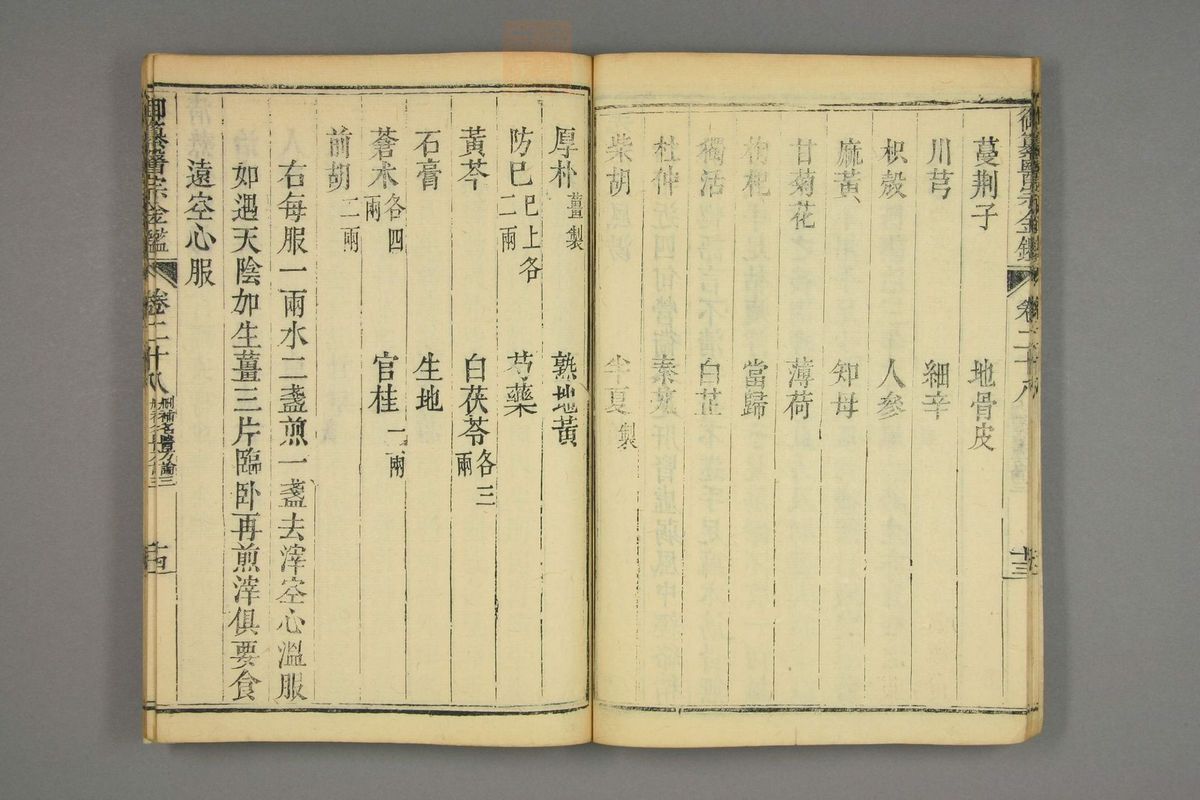 御纂醫宗金鑑 卷二十八
十三
蔓荆子 地骨皮
川芎 細辛
枳殼 人參
麻黃 知母
甘菊花 薄荷
枸杞 當歸
獨活 白芷
杜仲 秦艽
柴胡 半夏製
厚朴薑製 熟地黃
防巳巳上各二兩 芍藥
黃芩 白茯苓各三兩
石膏 生地
蒼术各四兩 官桂一兩
前胡二兩
右每服一兩水二盞煎一盞去滓空心溫服
如遇天陰加生薑三片臨卧再煎滓俱要食
遠空心服
御纂醫宗金鑑 卷二十八 刪補名醫方論三
十四